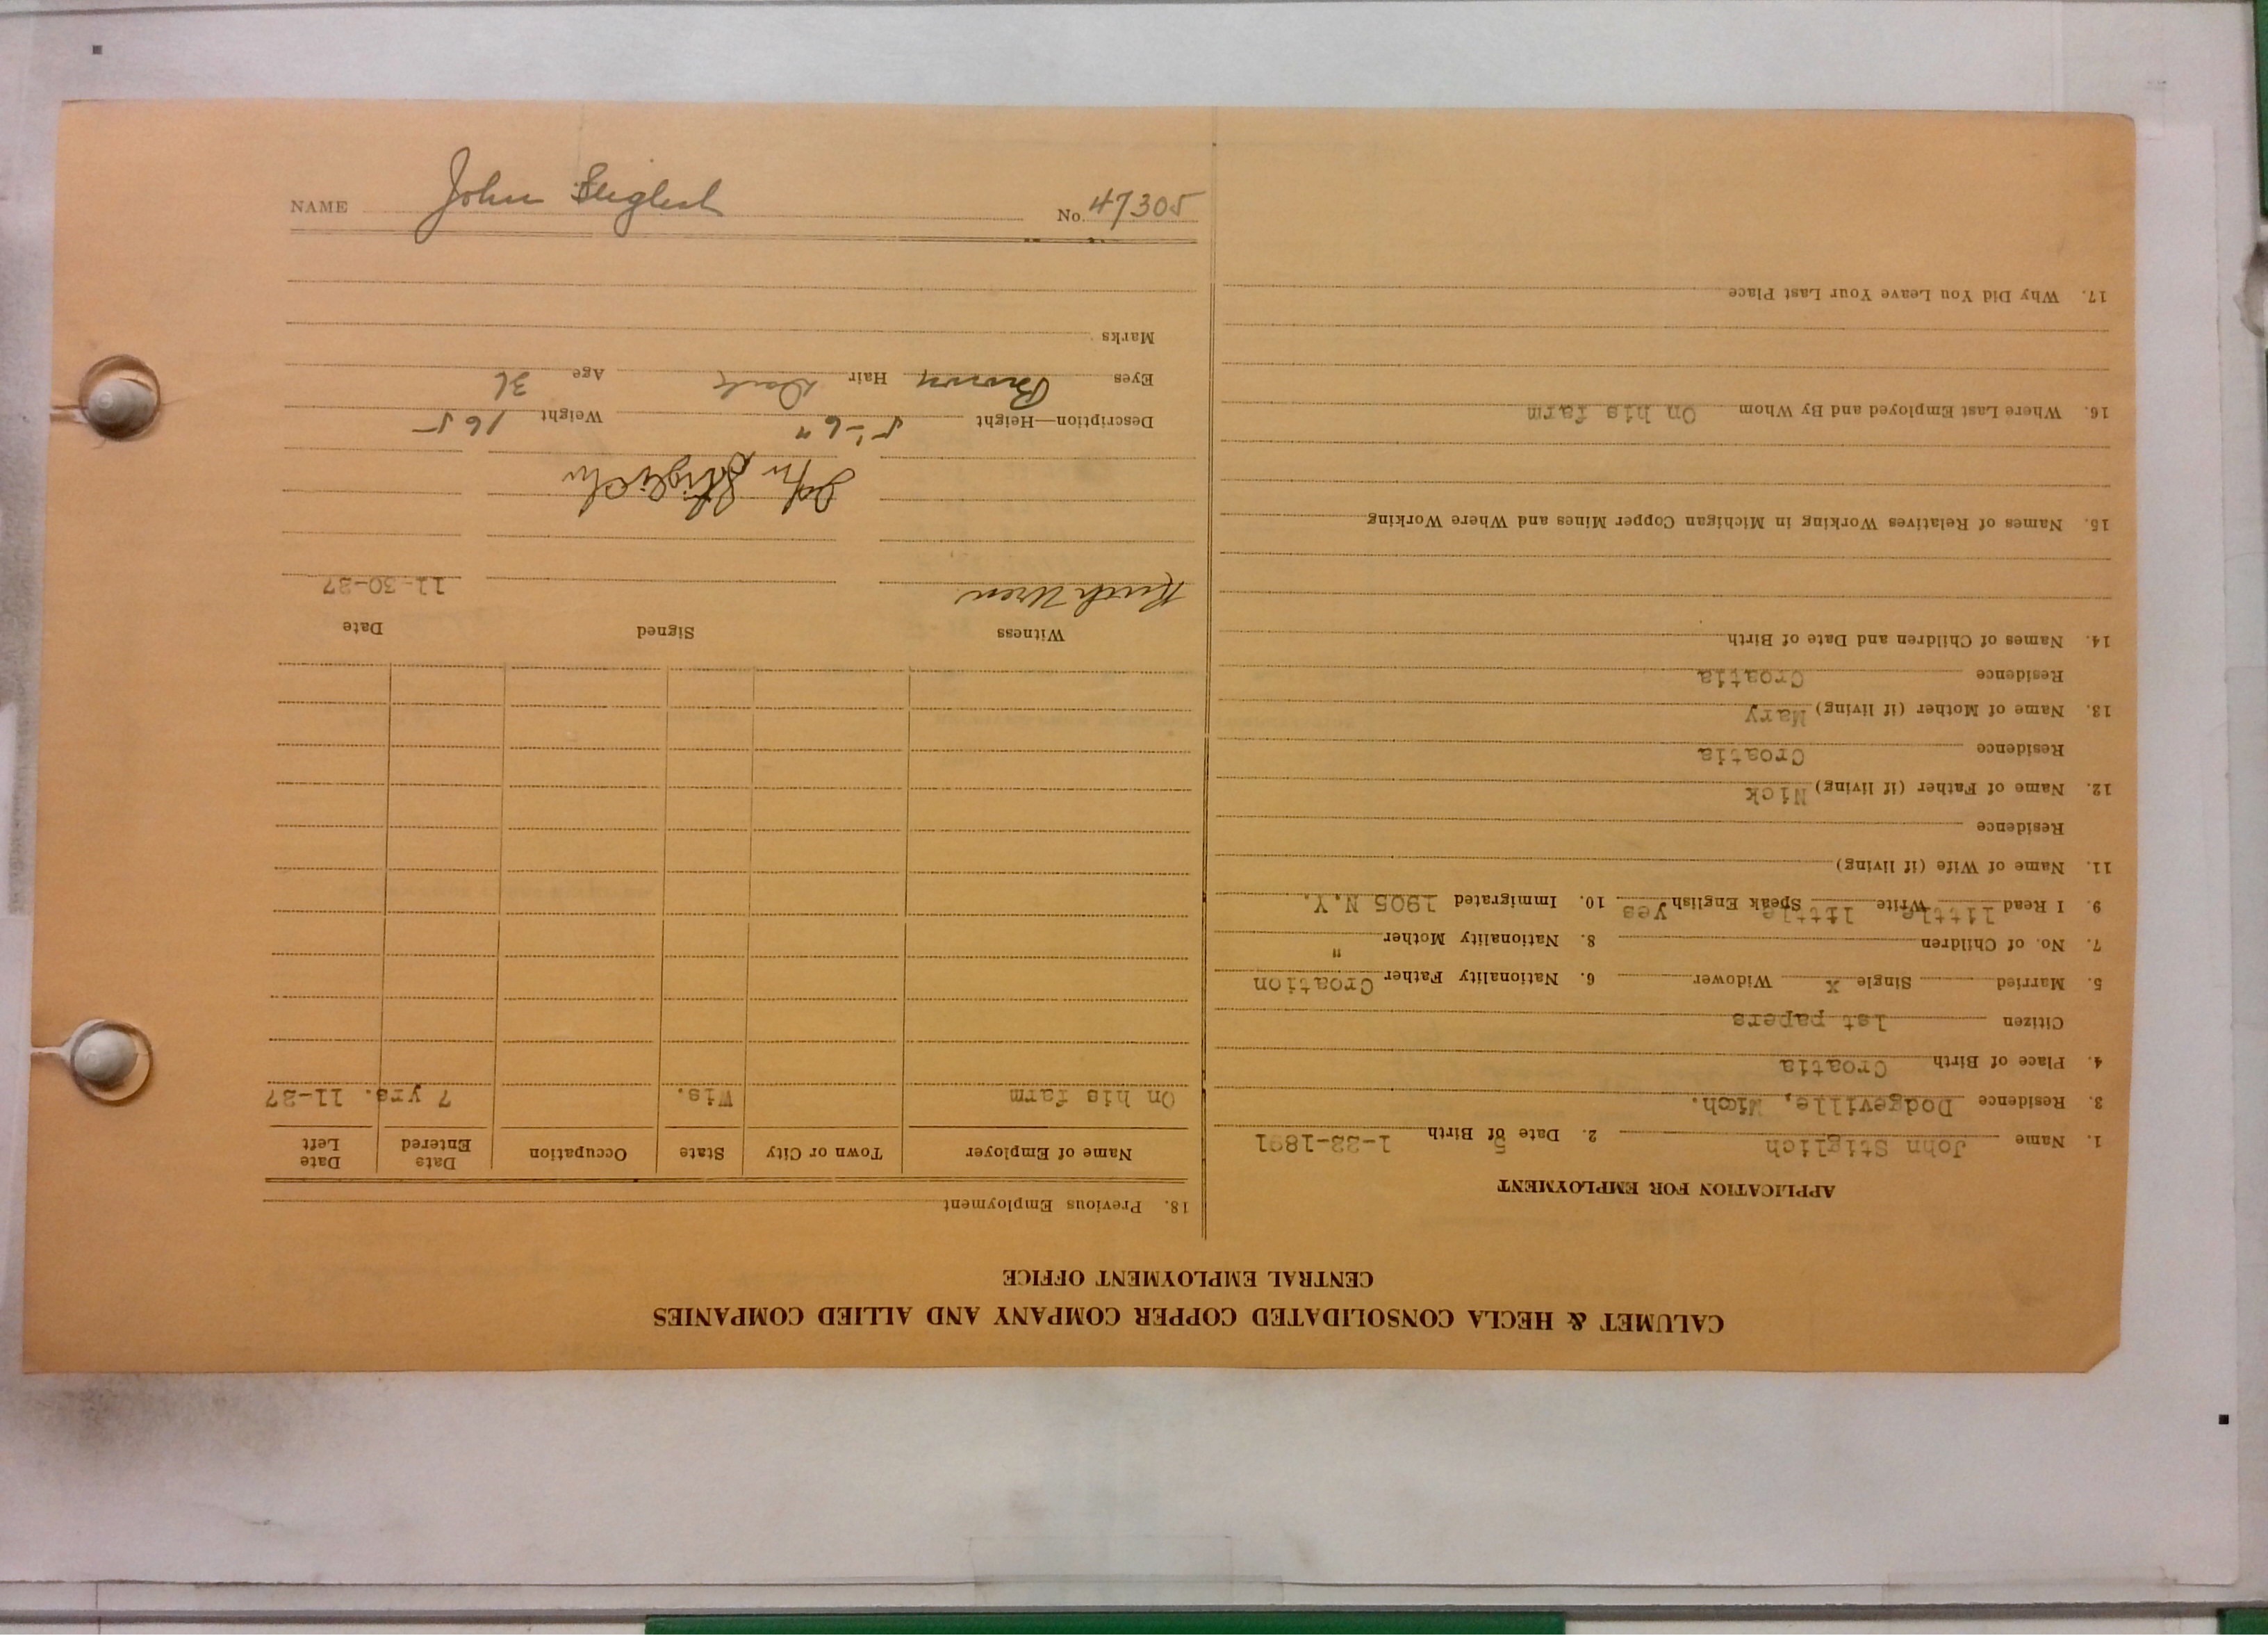 NAME John Stiglich No. 47305
CALUMET & HECLA CONSOLIDATED COPPER COMPANY AND ALLIED COMPANIES
CENTRAL EMPLOYMENT OFFICE
APPLICATION FOR EMPLOYMENT
1. Name John Stiglich 2. Date of Birth 5 1-23-1891
3. Residence Dodgeville, Mich.
4. Place of Birth Croatia
Citizen 1st papers
5. Married Single X Widower 6. Nationality Father Croation
7. No. of Children 8. Nationality Mother "
9. I Read little Write little Speak English yes 10. Immigrated 1905 N.Y.
11. Name of Wife (if living)
Residence
12. Name of Father (if living) Nick
Residence Croatia
13. Name of Mother (if living) Mary
Residence Croatia
14. Names of Children and Date of Birth
15. Names of Relatives Working in Michigan Copper Mines and Where Working
16. Where Last Employed and By Whom On his farm
17. Why Did You Leave Your Last Place
18. Previous Employment
Name of Employer Town or City State Occupation Date Entered Date Left
On his farm Wis. 7 yrs. 11-27
Witness Signed Date
11-30-27
John Stiglich
Description—Height 5'-6" Weight 165
Eyes Brown Hair Dark Age 36
Marks